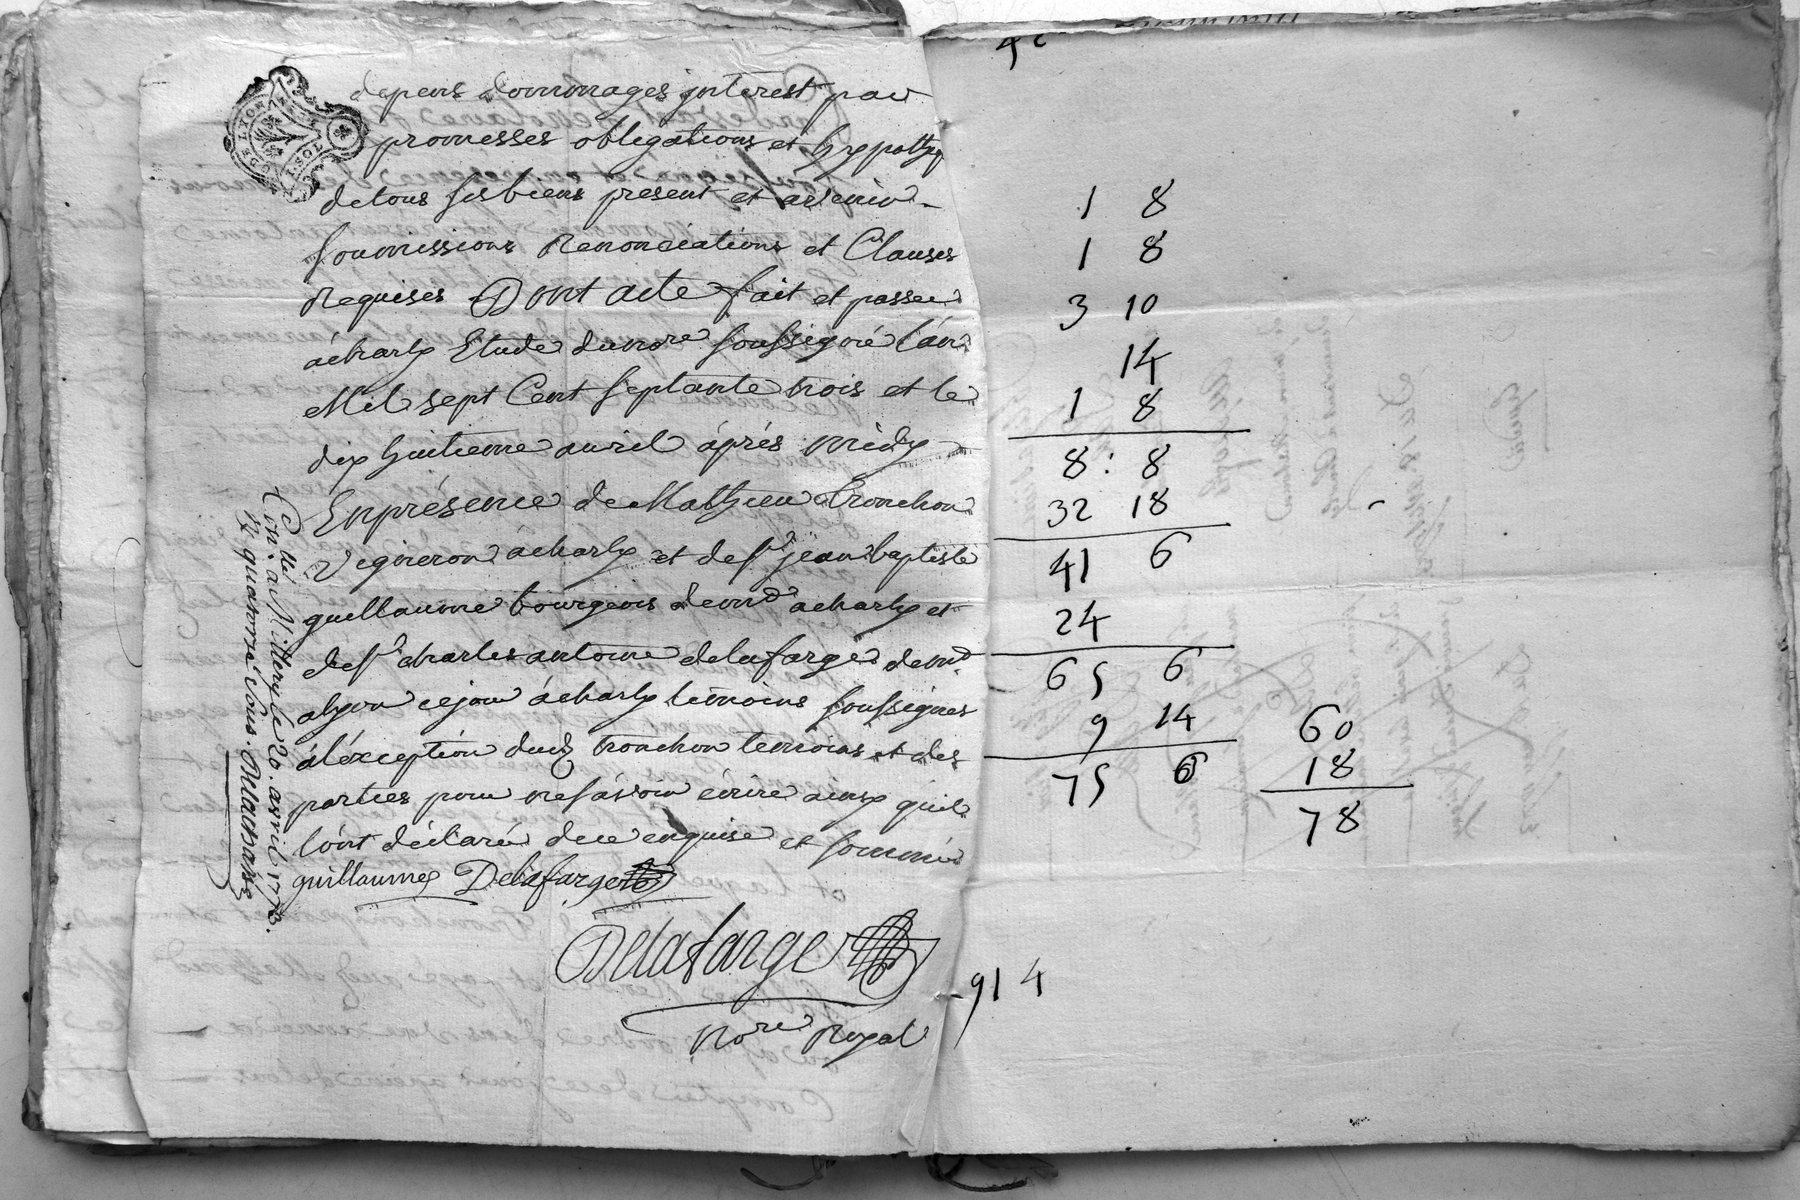 DE LYON
I. SOL
depens dommages jnterest par
promesses obligations et hypotheq
detous ses biens present et avenir
soumissions Renonciations et Clauses
Requises Dont acte fait et passé
acharly Etude dunore soussigné l'án
Mil sept Cent septante trois et le
dix huitieme auril áprés midy
Enprésence de Mathieu tronchon
Vigneron àcharly et de sr jean baptiste
guillaume bourgeois demt acharly et
de sr charles antoine delafarge demt
alyon cejour ácharly temoins soussignes
áléxception dudt tronchon temoins et des
parties pour nesávoir écrire ainsy quils
l'ónt déclaré dece enquise et sommé
guillaume Delafarge
Delafarge
Nore Royal
Collé
Con. a Millery le 20. avril 1773.
Rx quatorze sous. Delachassé
1 8
1 8
3 10
14
1 8
8 : 8
32 18
41 6
24
65 6
9 14
75 6
60
18
78
914